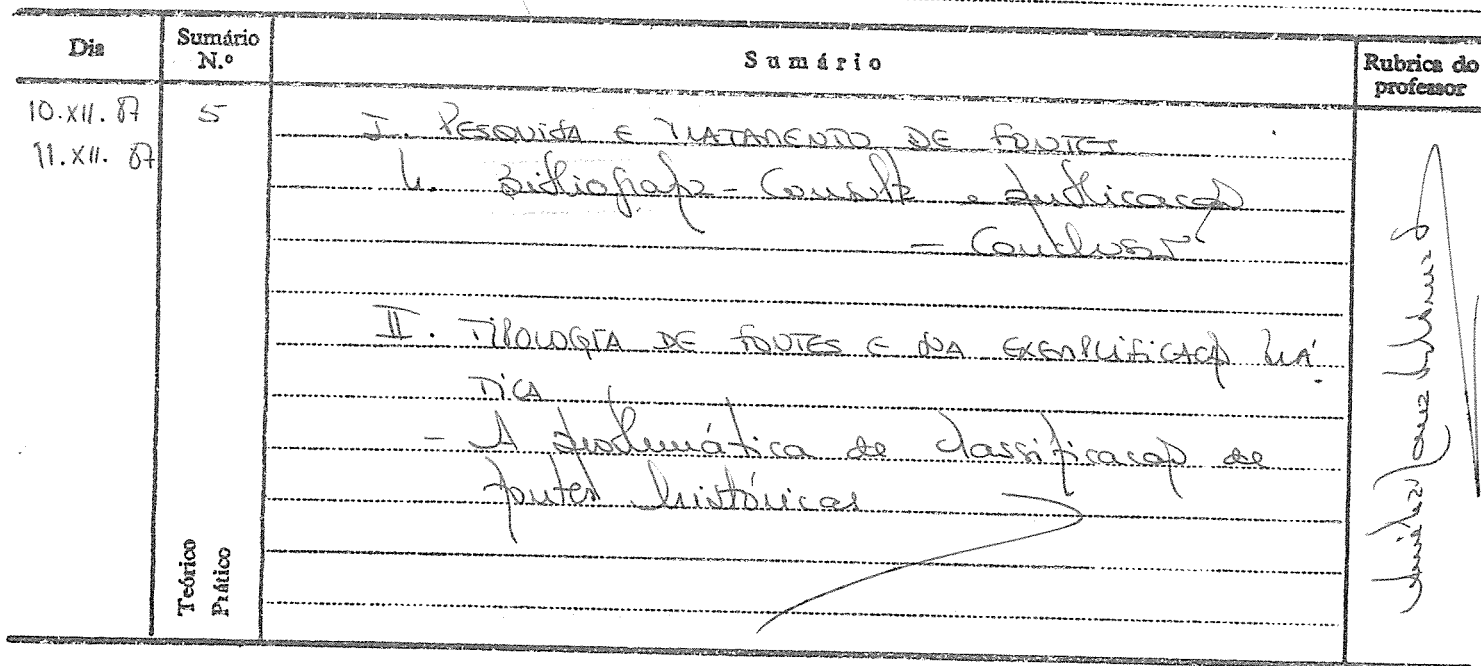 Dia
Sumário N.º
Sumário
Rubrica do professor
10.XII.87
5
11.XII.87
I. PESQUISA E TRATAMENTO DE FONTES
4. Bibliografia - Consulta e publicação
- Conclusão
II. TIPOLOGIA DE FONTES E SUA EXEMPLIFICAÇÃO PRÁ
TICA
- A problemática de classificação de
fontes históricas
Teórico
Prático